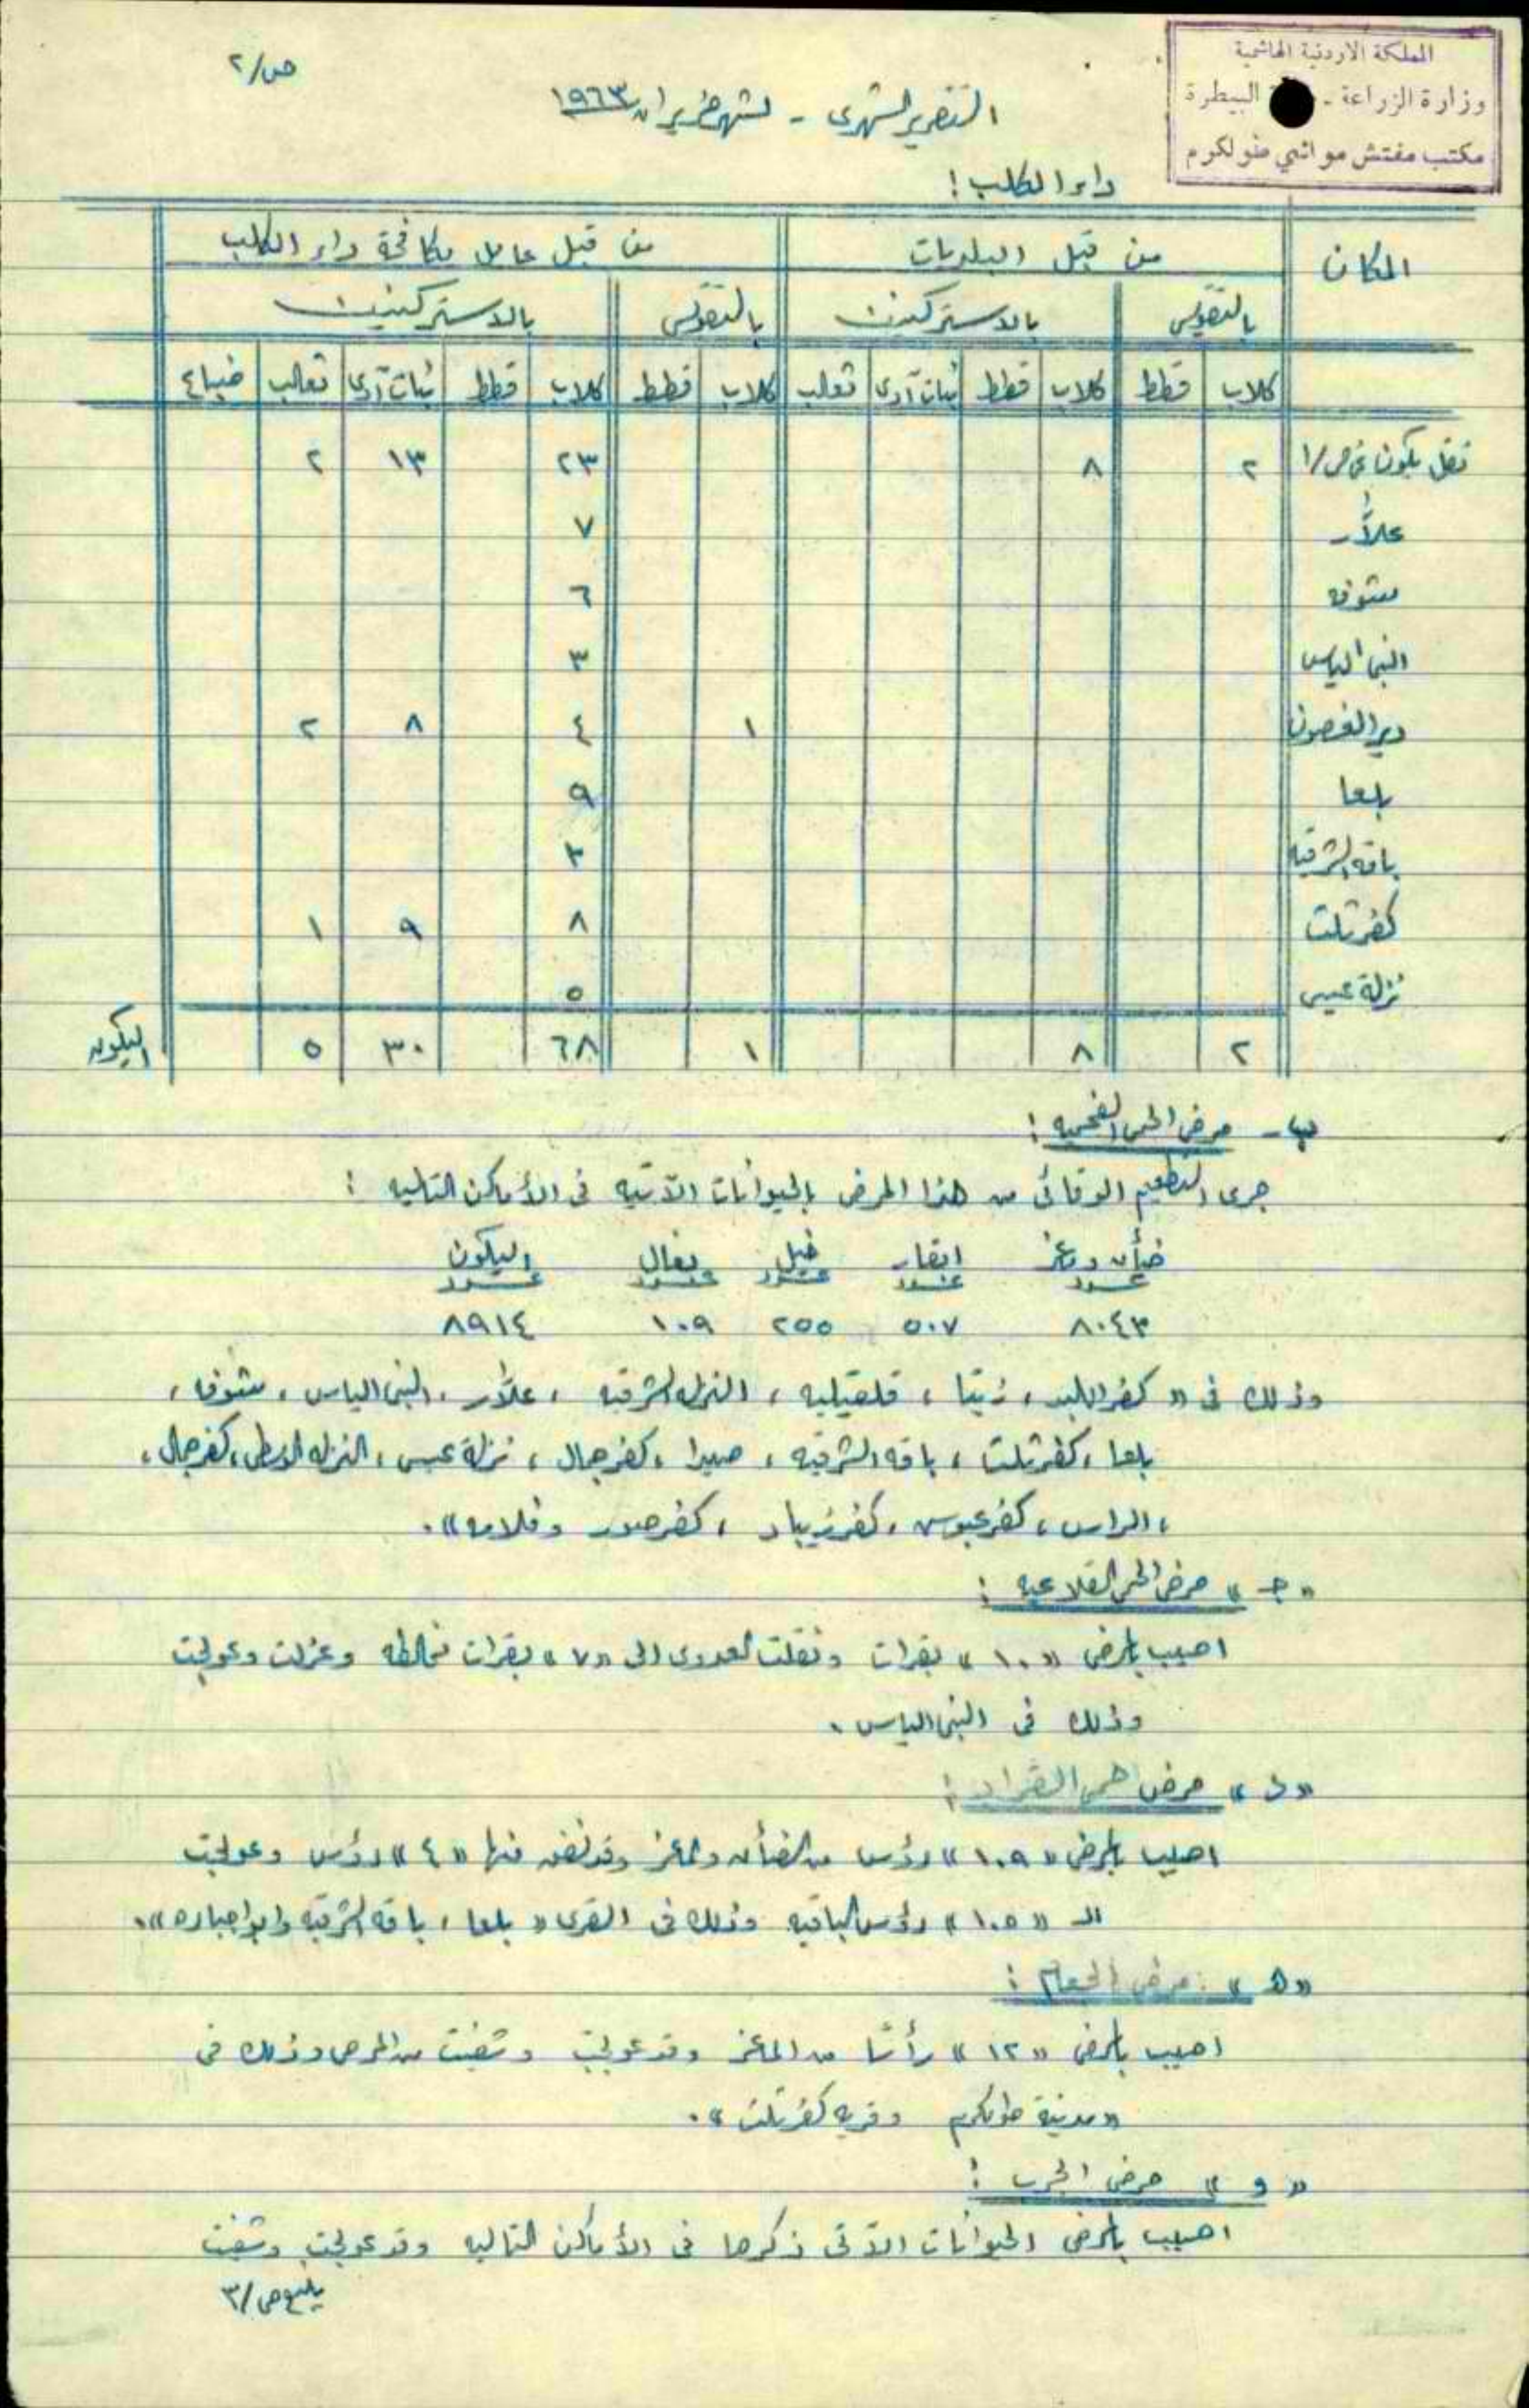 المملكة الاردنية الهاشمية
وزارة الزراعة - البيطرة
مكتب مفتش مواشي طولكرم
ص/٢
التقرير الشهري - لشهر حزيران ١٩٦٣
داء الكلب :
المكان | من قبل البلديات | من قبل عامل مكافحة داء الكلب
بالتقويس | بالاستركنين | بالتقويس | بالاستركنين
كلاب | قطط | كلاب | قطط | بنات آوى | ثعالب | كلاب | قطط | كلاب | قطط | بنات آوى | ثعالب | ضباع
نقل يكون عن ص/١ ٢ ٨ ٢٣ ١٣ ٢
علّار ٧
شوفه ٦
النبي الياس ٣
دير الغصون ١ ٤ ٨ ٢
بلعا ٩
باقه الشرقيه ٣
كفر ثلث ٨ ٩ ١
نزلة عيسى ٥
٢ ٨ ١ ٦٨ ٣٠ ٥ اليكون
ب - مرض الحمى الفحميه :
جرى التطعيم الوقائي من هذا المرض بالحيوانات الآتيه في الأماكن التاليه :
ضأن وماعز ابقار خيل بغال اليكون
عدد عدد عدد عدد عدد
٨٠٤٣ ٥٠٧ ٢٥٥ ١٠٩ ٨٩١٤
وذلك في « كفر اللبد ، زيتا ، قلقيليه ، النزله الشرقيه ، علّار ، النبي الياس ، شوفه ،
بلعا ، كفر ثلث ، باقه الشرقيه ، صيدا ، كفر جمال ، نزلة عيسى ، النزله الوسطى ، كفر جمال ،
، الراس ، كفر عبوس ، كفر زيباد ، كفر صور وفلاميه » .
« جـ » مرض الحمى القلاعيه :
اصيب بالمرض « ١٠ » بقرات ونقلت العدوى الى « ٧ » بقرات مخالطه وعزلت وعولجت
وذلك في النبي الياس .
« د » مرض حمى القراد :
اصيب بالمرض « ١٠٩ » رؤس من الضأن والماعز وقد نفق منها « ٤ » رؤس وعولجت
الـ « ١٠٥ » رؤس الباقيه وذلك في القرى « بلعا ، باقه الشرقيه و ».
« ه » مرض :
اصيب بالمرض « ١٢ » رأسًا من الماعز وقد عولجت وشفيت من المرض وذلك في
« مدينة طولكرم وقريه كفر ثلث » .
« و » مرض الجرب :
اصيب بالمرض الحيوانات الآتى ذكرها في الأماكن التاليه وقد عولجت وشفيت
يتبع ص/٣